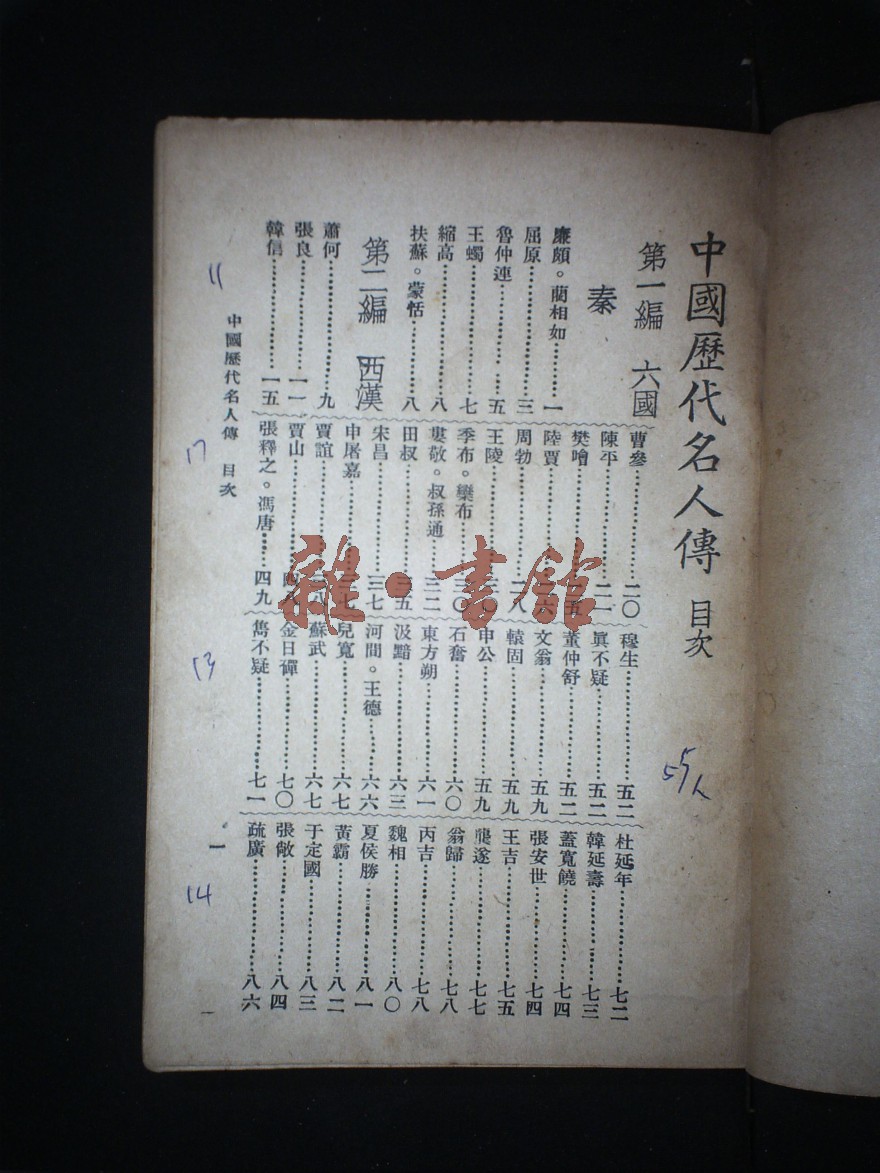 中國歷代名人傳 目次
第一編 六國
秦
廉頗。藺相如…………一
屈原…………三
魯仲連…………五
王蠋…………七
縮高…………八
扶蘇。蒙恬…………八
第二編 西漢
蕭何…………九
張良…………一一
韓信…………一五
曹參…………二〇
陳平…………二一
樊噲…………二五
陸賈…………二六
周勃…………二八
王陵…………三〇
季布。欒布…………三〇
婁敬。叔孫通…………三二
田叔…………三五
宋昌…………三七
申屠嘉…………三七
賈誼…………三八
賈山…………四八
張釋之。馮唐…………四九
穆生…………五二
直不疑…………五二
董仲舒…………五二
文翁…………五九
轅固…………五九
申公…………五九
石奮…………六〇
東方朔…………六一
汲黯…………六三
河間。王德…………六六
兒寬…………六七
蘇武…………六七
金日磾…………七〇
雋不疑…………七一
杜延年…………七二
韓延壽…………七三
蓋寬饒…………七四
張安世…………七四
王吉…………七五
龔遂…………七七
翁歸…………七八
丙吉…………七八
魏相…………八〇
夏侯勝…………八一
黃霸…………八二
于定國…………八三
張敞…………八四
疏廣…………八六
中國歷代名人傳 目次
一
一
11
17
13
14
55人
雜·書館